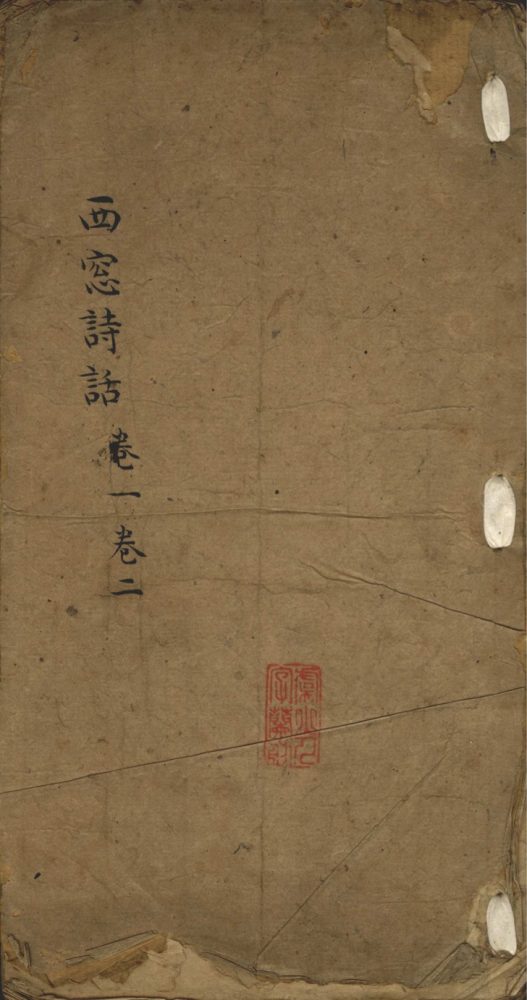 西窓詩話 卷一卷二